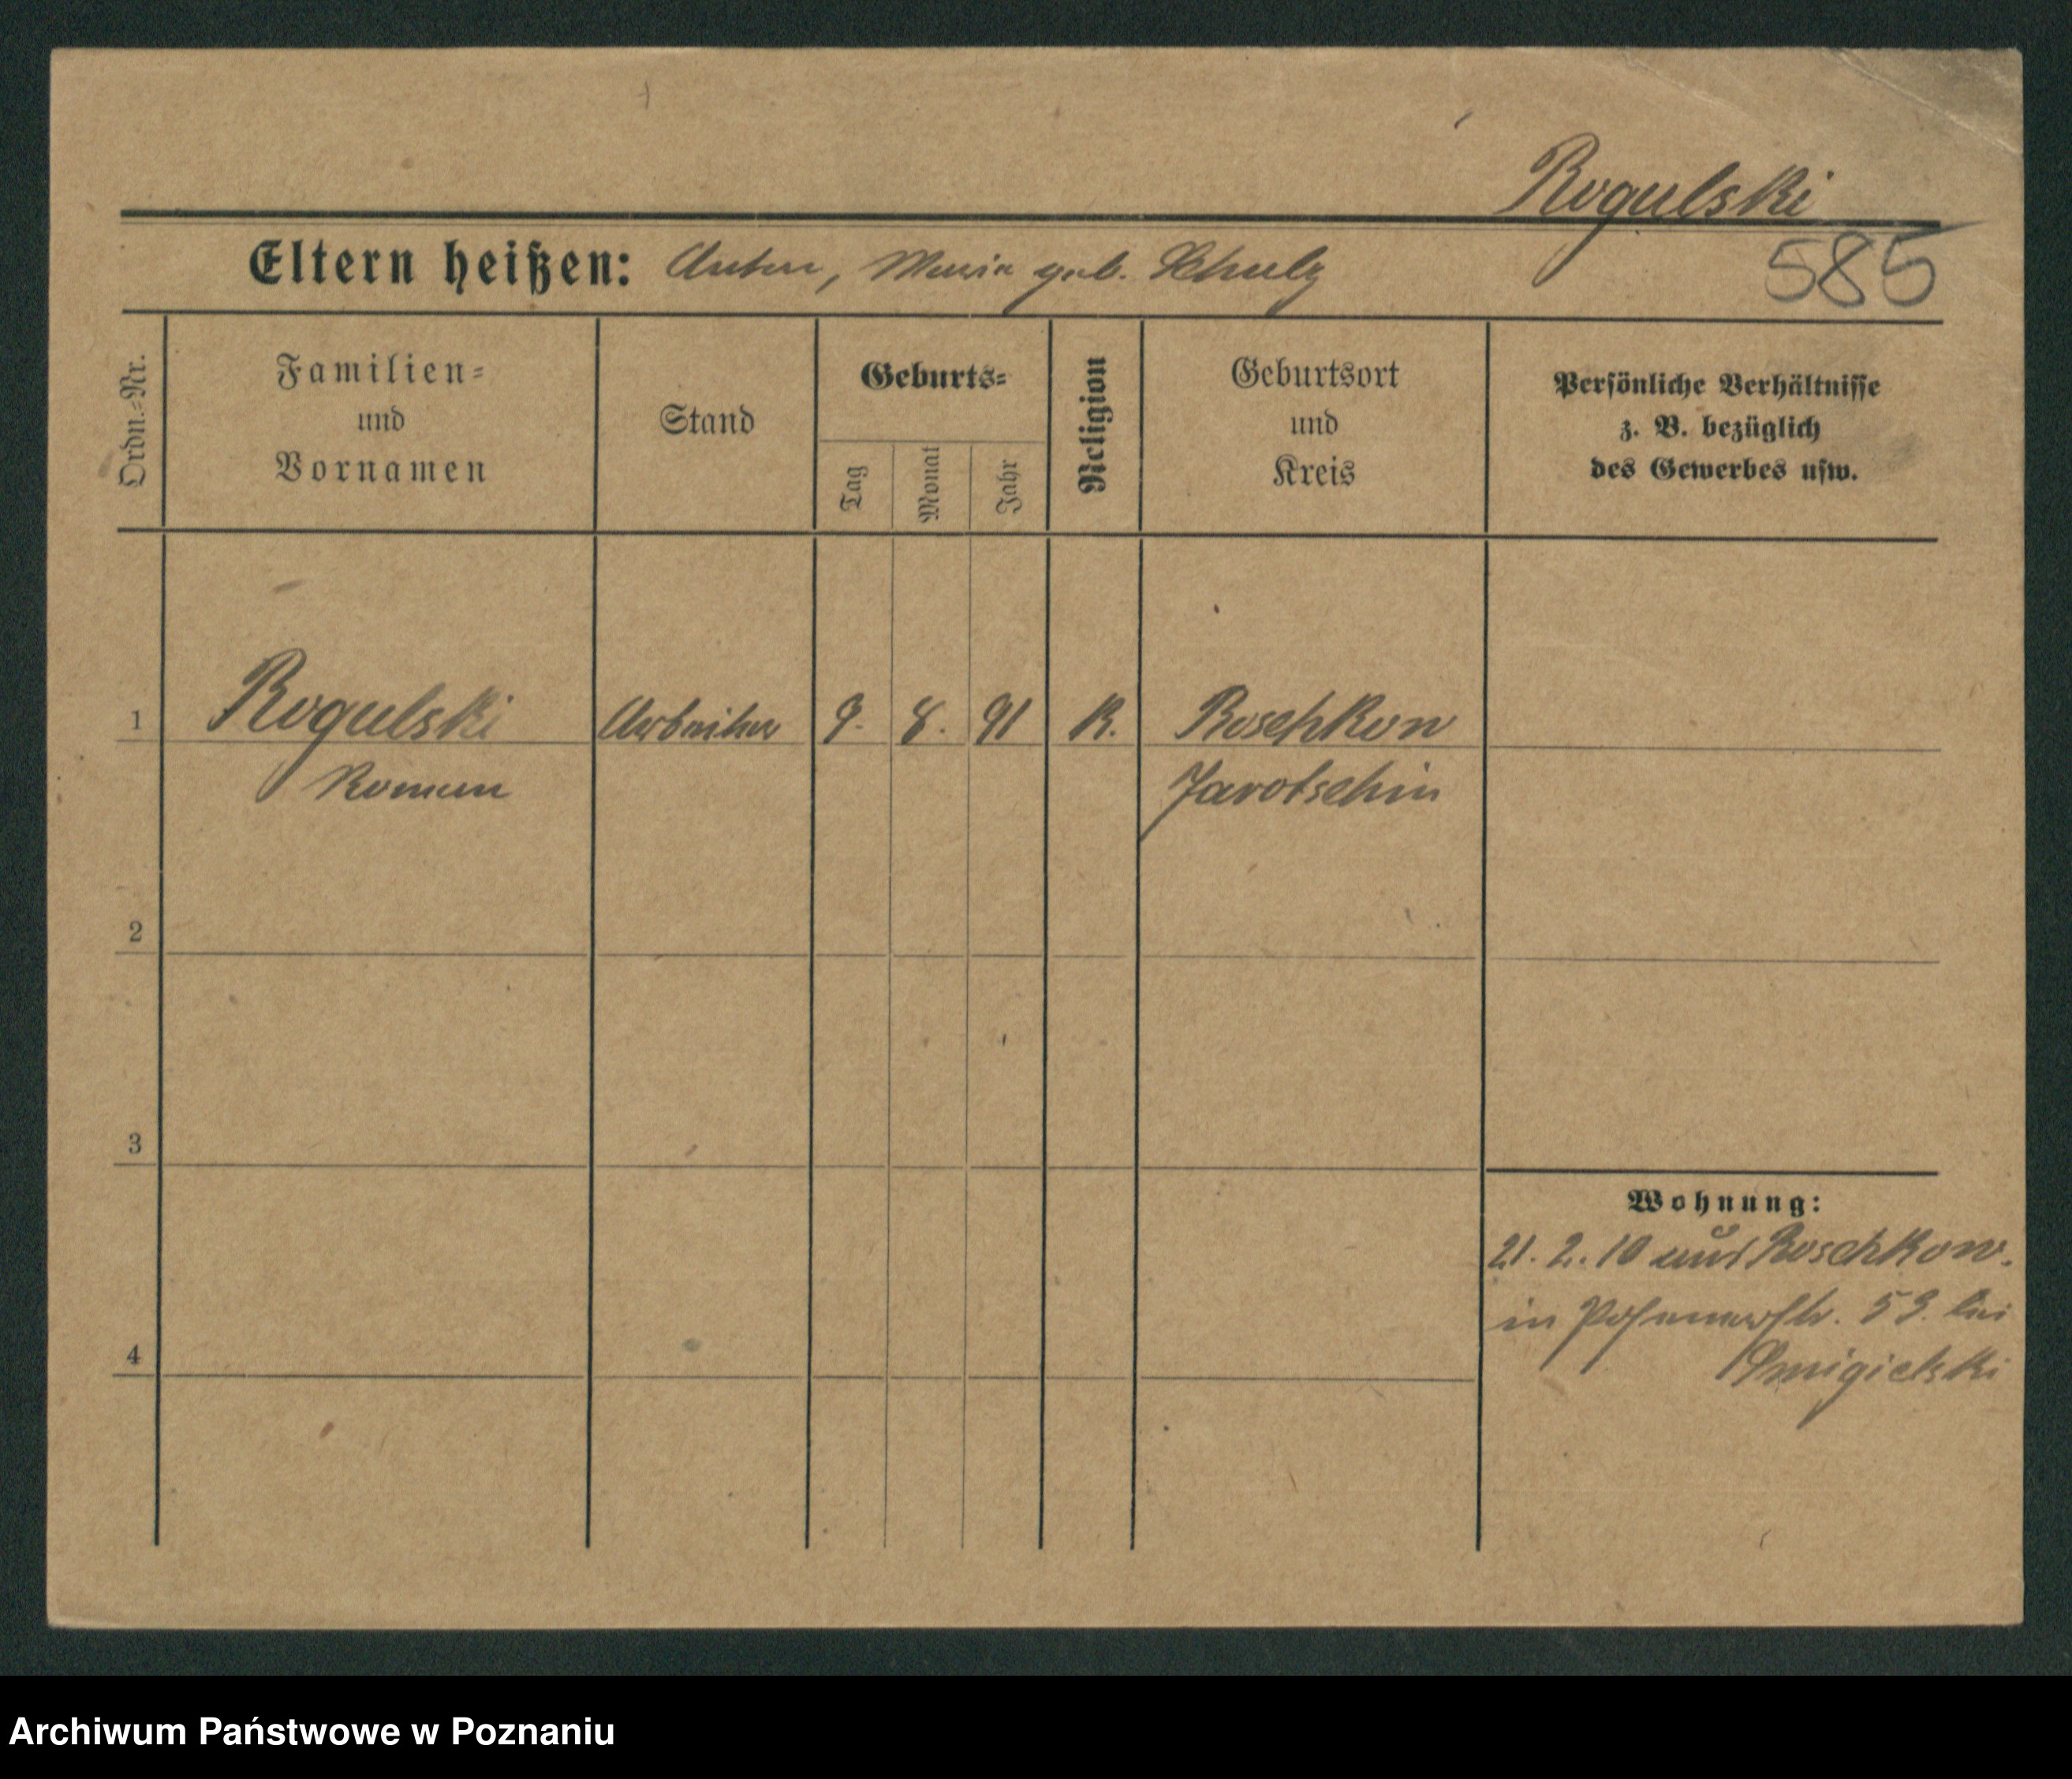 Rogulski
585
Eltern heißen: Anton, Maria geb. Schulz
Ordn.=Nr.
Familien=
und
Vornamen
Stand
Geburts=
Tag
Monat
Jahr
Religion
Geburtsort
und
Kreis
Persönliche Verhältnisse
z. B. bezüglich
des Gewerbes usw.
1 Rogulski Arbeiter 9. 8. 91 K. Roschkow
Roman Jarotschin
2
3
4
Wohnung:
21. 2. 10 aus Roschkow.
in Posenerstr. 53. bei
Smigielski
Archiwum Państwowe w Poznaniu